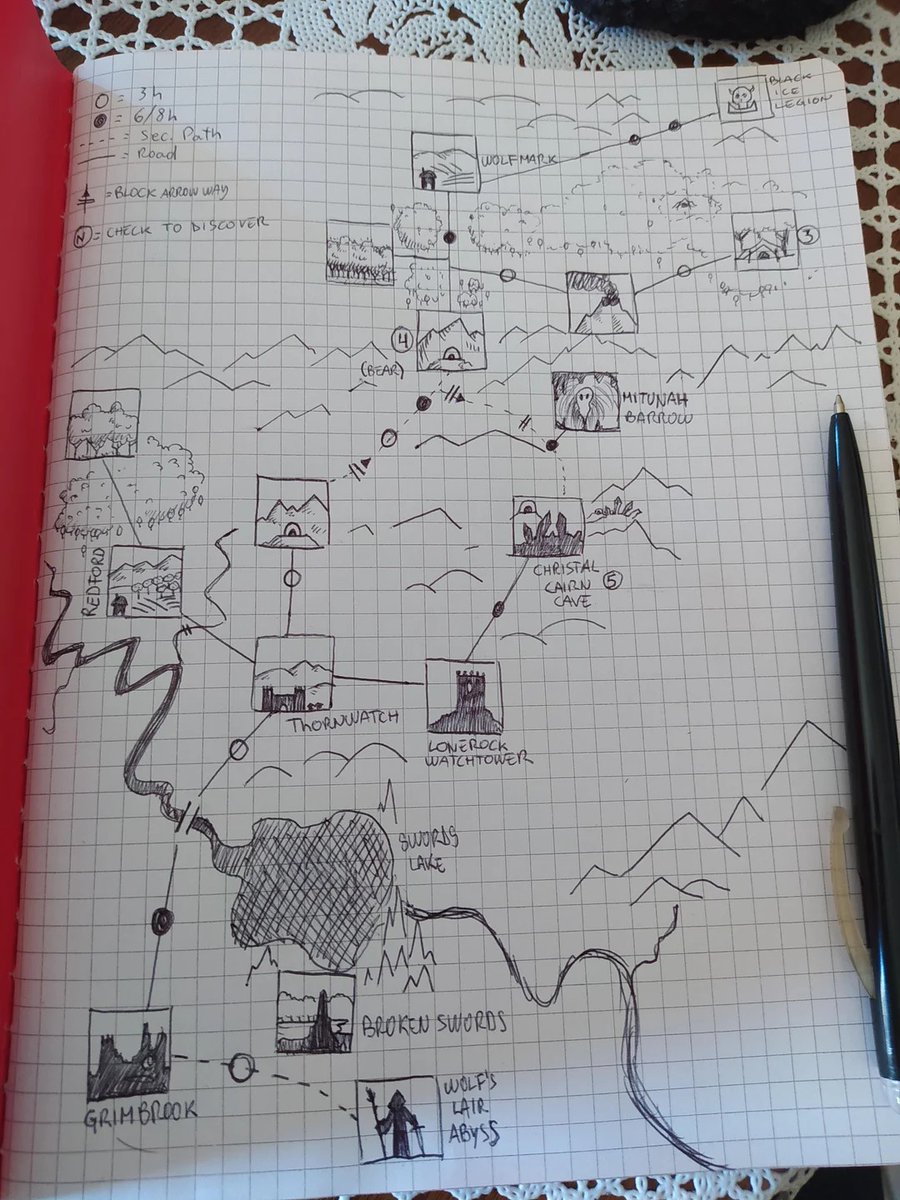 ○ = 3h
● = 6/8h
---- = Sec. Path
—— = Road
= BLOCK ARROW WAY
Ⓝ = CHECK TO DISCOVER
BLACK
ICE
LEGION
WOLFMARK
3
4
(BEAR)
MITUNAH
BARROW
REDFORD
CHRISTAL
CAIRN
CAVE
5
THORNWATCH
LONEROCK
WATCHTOWER
SWORDS
LAKE
BROKEN SWORDS
GRIMBROOK
WOLF'S
LAIR
ABYSS